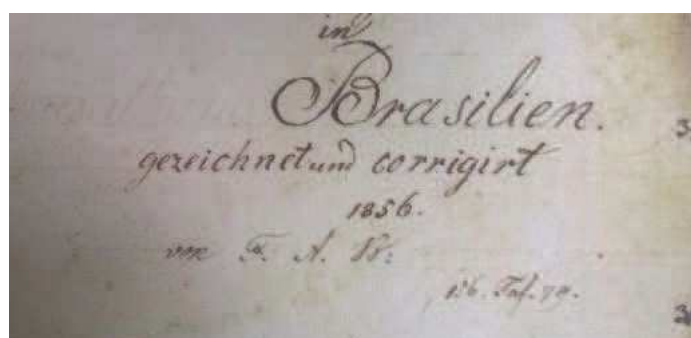 in
Brasilien.
gezeichnet und corrigirt
1856.
von F. A.
Taf. 79.
3
3